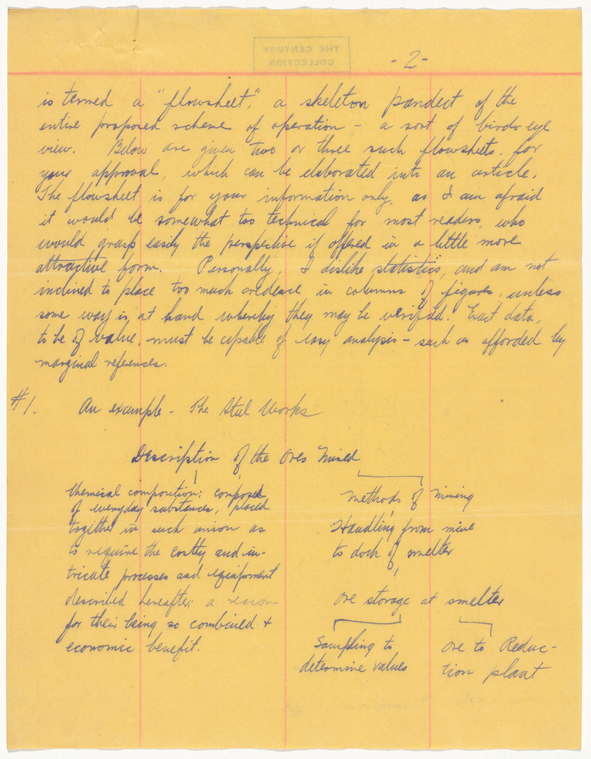 THE CENTURY
COLLECTION
-2-
is termed a "flowsheet", a skeleton pandect of the
entire proposed scheme of operation - a sort of birds eye
view. Below are given two or three such flowsheets, for
your approval, which can be elaborated into an article.
The flowsheet is for your information only, as I am afraid
it would be somewhat too technical for most readers, who
would grasp easily the perspective if offered in a little more
attractive form. Personally, I dislike statistics, and am not
inclined to place too much credence in columns of figures, unless
some way is at hand whereby they may be verified. Exact data,
to be of value, must be capable of easy analysis - such as afforded by
marginal references.
#1. An example - The Steel Works
Description of the Ores Mined
Chemical composition: composed
of everyday substances, placed
together in such union as
to require the costly and in-
tricate processes and equipment
described hereafter: a reason
for their being so combined &
economic benefit.
Methods of Mining
Handling from mine
to dock of smelter
Ore storage at smelter
Sampling to
determine values
Ore to Reduc-
tion plant